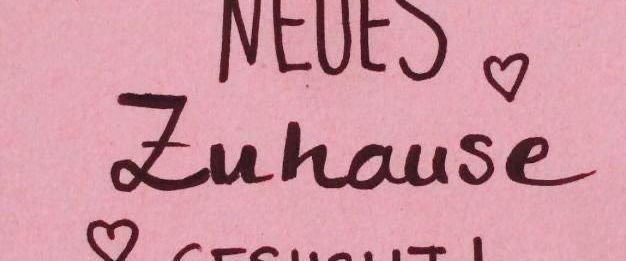 NEUES
Zuhause
GESUCHT!